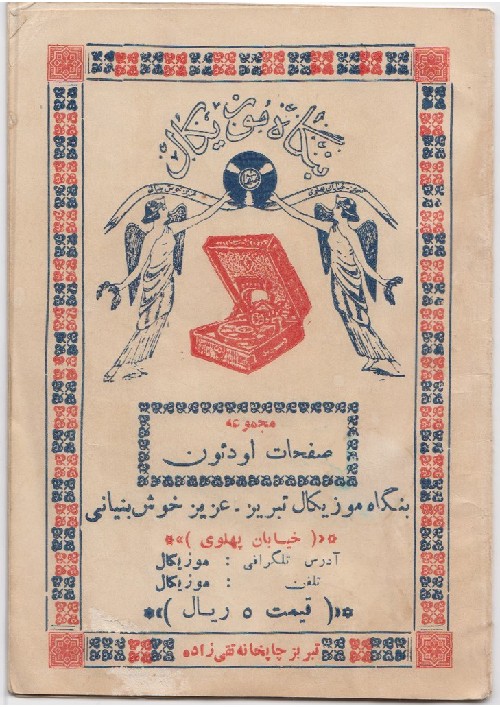 بنگاه موزیکال
مجموعه
صفحات اودئون
بنگاه موزیکال تبریز - عزیز خوش بنیانی
»( خیابان پهلوی )«
آدرس تلگرافی : موزیکال
تلفن : موزیکال
»( قیمت ۵ ریال )«
تبریز چاپخانه تقی زاده